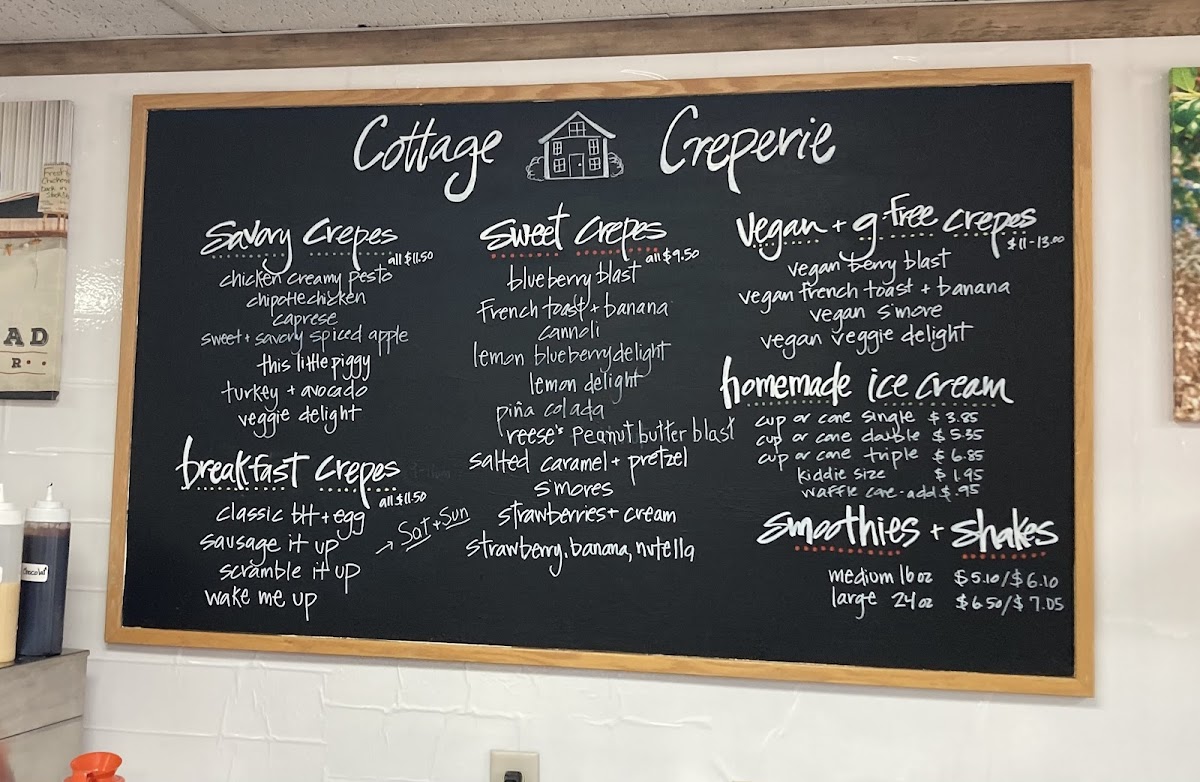 Cottage Creperie
Savory Crepes
all $11.50
chicken creamy pesto
chipotle chicken
caprese
sweet + savory spiced apple
this little piggy
turkey + avocado
veggie delight
breakfast crepes
all $11.50
classic ht + egg
sausage it up
→ Sat + Sun
scramble it up
wake me up
Sweet crepes
all $9.50
blueberry blast
French toast + banana
cannoli
lemon blueberry delight
lemon delight
piña colada
reese's peanut butter blast
salted caramel + pretzel
s'mores
strawberries + cream
strawberry, banana, nutella
Vegan + g free crepes
$11-13.00
vegan berry blast
vegan french toast + banana
vegan s'more
vegan veggie delight
homemade ice cream
cup or cone single $3.85
cup or cone double $5.35
cup or cone triple $6.85
kiddie size $1.95
waffle cone - add $.95
Smoothies + Shakes
medium 16oz $5.10/$6.10
large 24oz $6.50/$7.05
AD
R